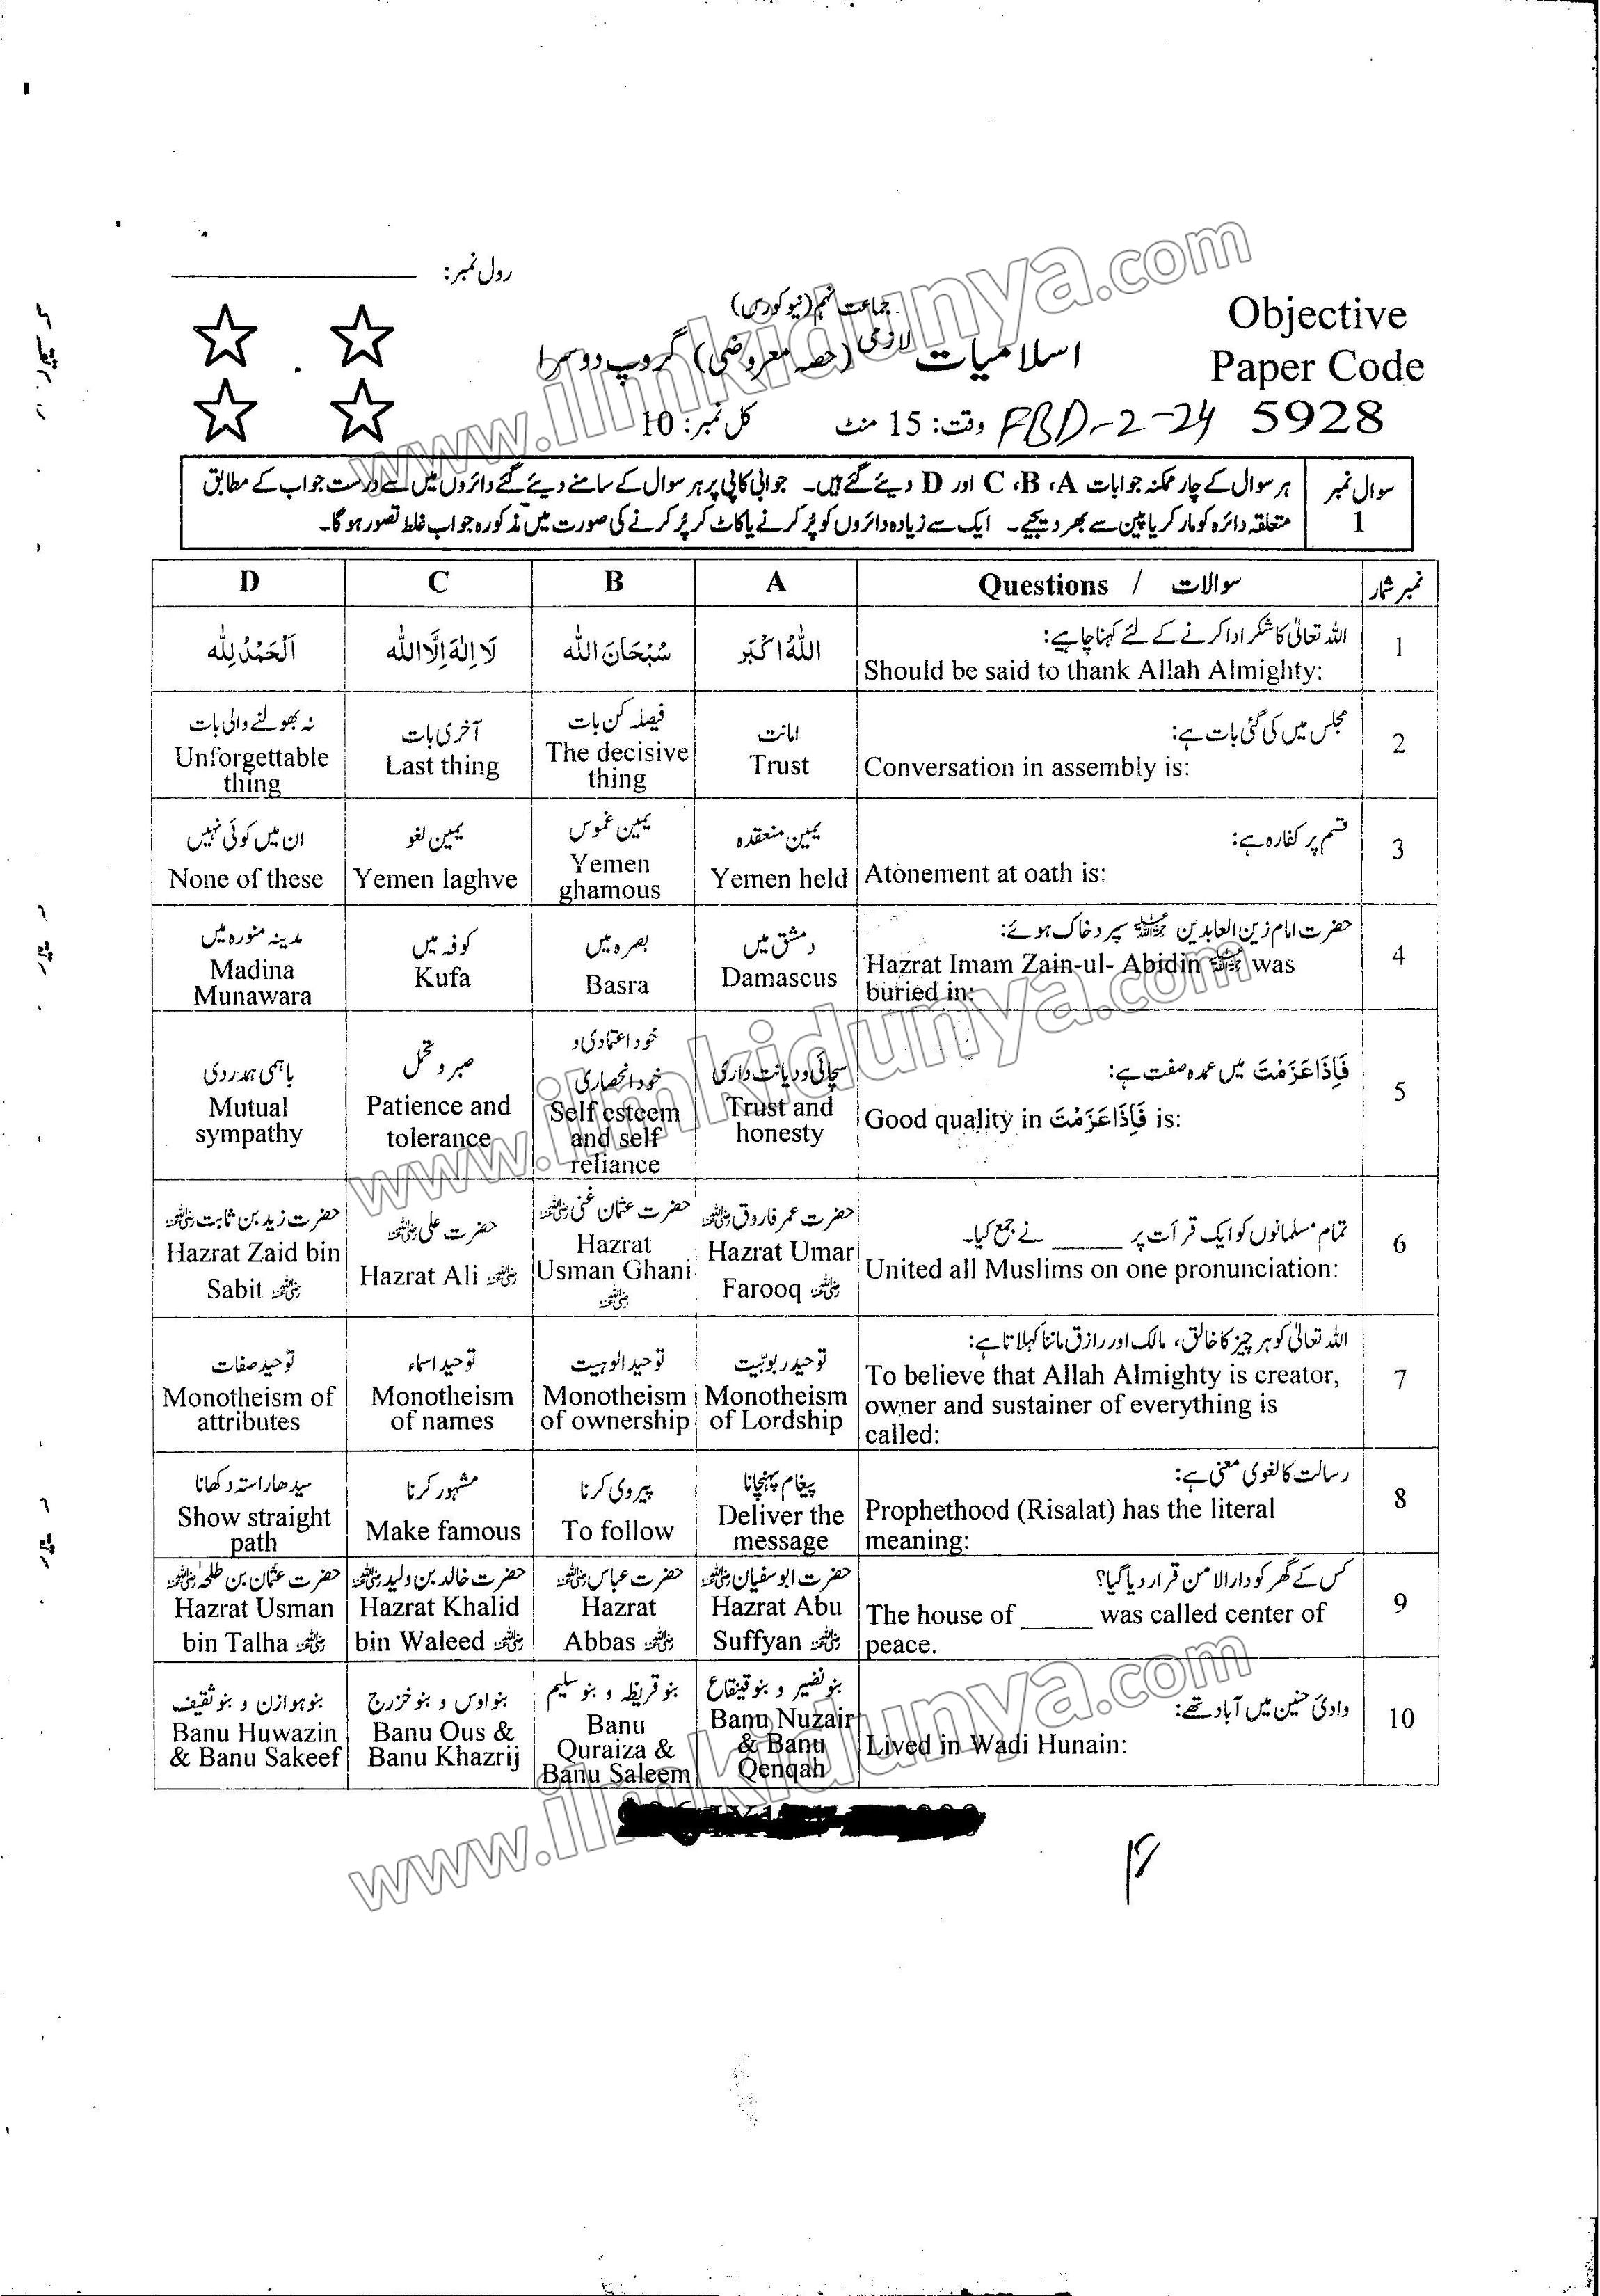 رول نمبر:
جماعت نہم (نیو کورس)
Objective
Paper Code
اسلامیات لازمی (حصہ معروضی) گروپ دوسرا
5928 FBD-2-24 وقت: 15 منٹ کل نمبر: 10
سوال نمبر 1
ہر سوال کے چار ممکنہ جوابات A، B، C اور D دیئے گئے ہیں۔ جوابی کاپی پر ہر سوال کے سامنے دیئے گئے دائروں میں سے درست جواب کے مطابق
متعلقہ دائرہ کو مارکر یا پین سے بھر دیجیے۔ ایک سے زیادہ دائروں کو پُر کرنے یا کاٹ کر پُر کرنے کی صورت میں مذکورہ جواب غلط تصور ہوگا۔
نمبر شمار
سوالات / Questions
A
B
C
D
1
اللہ تعالیٰ کا شکر ادا کرنے کے لئے کہنا چاہیے:
Should be said to thank Allah Almighty:
اَللّٰہُ اَکْبَر
سُبْحَانَ اللّٰہ
لَا اِلٰہَ اِلَّا اللّٰہ
اَلْحَمْدُ لِلّٰہ
2
مجلس میں کی گئی بات ہے:
Conversation in assembly is:
امانت
Trust
فیصلہ کن بات
The decisive
thing
آخری بات
Last thing
نہ بھولنے والی بات
Unforgettable
thing
3
قسم پر کفارہ ہے:
Atonement at oath is:
یمین منعقدہ
Yemen held
یمین غموس
Yemen
ghamous
یمین لغو
Yemen laghve
ان میں کوئی نہیں
None of these
4
حضرت امام زین العابدین سپردخاک ہوئے:
Hazrat Imam Zain-ul- Abidin was
buried in:
دمشق میں
Damascus
بصرہ میں
Basra
کوفہ میں
Kufa
مدینہ منورہ میں
Madina
Munawara
5
فَاِذَا عَزَمْتَ میں عمدہ صفت ہے:
Good quality in فَاِذَا عَزَمْتَ is:
سچائی و دیانت داری
Trust and
honesty
خود اعتمادی و
خود انحصاری
Self esteem
and self
reliance
صبر و تحمل
Patience and
tolerance
باہمی ہمدردی
Mutual
sympathy
6
تمام مسلمانوں کو ایک قرأت پر _____ نے جمع کیا۔
United all Muslims on one pronunciation:
حضرت عمر فاروق رضی اللہ عنہ
Hazrat Umar
Farooq رضی اللہ عنہ
حضرت عثمان غنی رضی اللہ عنہ
Hazrat
Usman Ghani
رضی اللہ عنہ
حضرت علی رضی اللہ عنہ
Hazrat Ali رضی اللہ عنہ
حضرت زید بن ثابت رضی اللہ عنہ
Hazrat Zaid bin
Sabit رضی اللہ عنہ
7
اللہ تعالیٰ کو ہر چیز کا خالق، مالک اور رازق ماننا کہلاتا ہے:
To believe that Allah Almighty is creator,
owner and sustainer of everything is
called:
توحید ربوبیت
Monotheism
of Lordship
توحید الوہیت
Monotheism
of ownership
توحید اسماء
Monotheism
of names
توحید صفات
Monotheism of
attributes
8
رسالت کا لغوی معنی ہے:
Prophethood (Risalat) has the literal
meaning:
پیغام پہنچانا
Deliver the
message
پیروی کرنا
To follow
مشہور کرنا
Make famous
سیدھا راستہ دکھانا
Show straight
path
9
کس کے گھر کو دارالامن قرار دیا گیا؟
The house of _____ was called center of
peace.
حضرت ابوسفیان رضی اللہ عنہ
Hazrat Abu
Suffyan رضی اللہ عنہ
حضرت عباس رضی اللہ عنہ
Hazrat
Abbas رضی اللہ عنہ
حضرت خالد بن ولید رضی اللہ عنہ
Hazrat Khalid
bin Waleed رضی اللہ عنہ
حضرت عثمان بن طلحہ رضی اللہ عنہ
Hazrat Usman
bin Talha رضی اللہ عنہ
10
وادیٔ حنین میں آباد تھے:
Lived in Wadi Hunain:
بنو نضیر و بنو قینقاع
Banu Nuzair
& Banu
Qenqah
بنو قریظہ و بنو سلیم
Banu
Quraiza &
Banu Saleem
بنو اوس و بنو خزرج
Banu Ous &
Banu Khazrij
بنو ہوازن و بنو ثقیف
Banu Huwazin
& Banu Sakeef
www.ilmkidunya.com
www.ilmkidunya.com
www.ilmkidunya.com